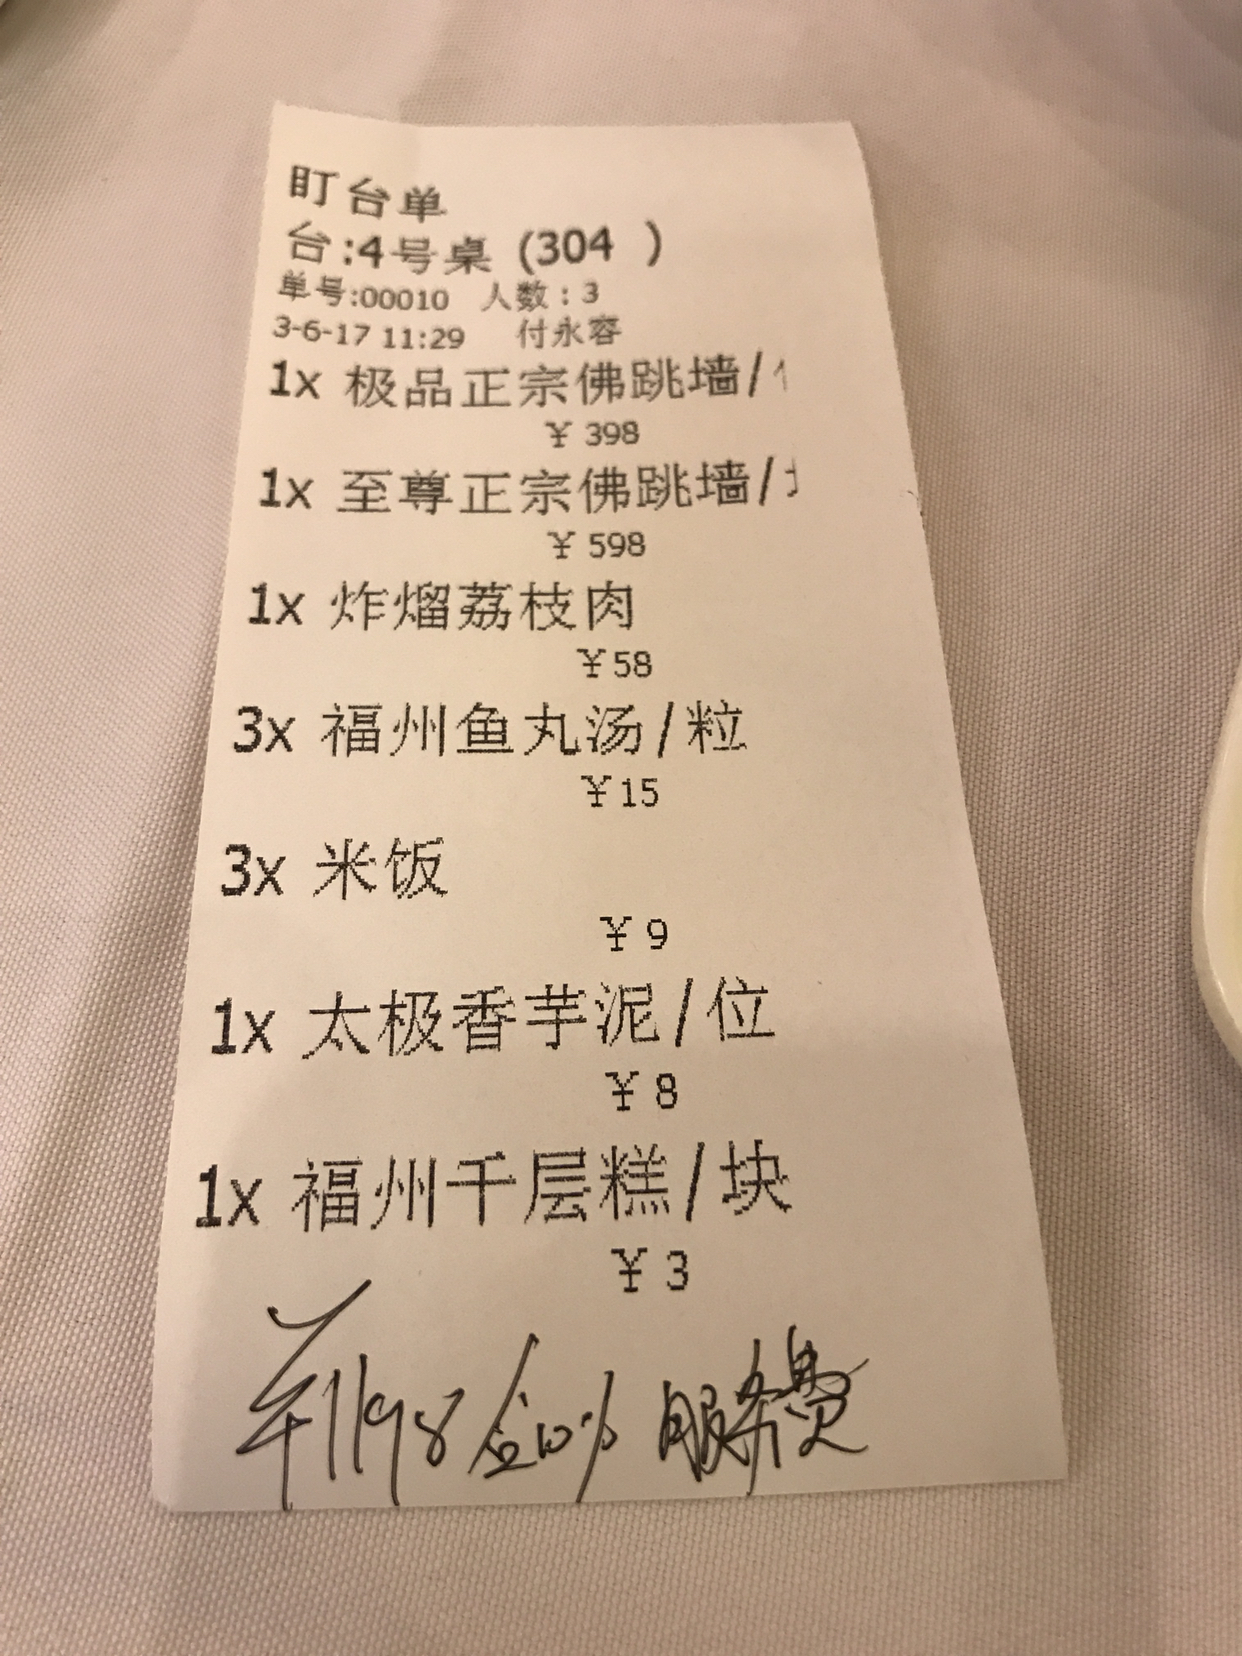 盯台单
台:4号桌 (304 )
单号:00010 人数:3
3-6-17 11:29 付永容
1x 极品正宗佛跳墙/
¥ 398
1x 至尊正宗佛跳墙/
¥ 598
1x 炸熘荔枝肉
¥58
3x 福州鱼丸汤/粒
¥15
3x 米饭
¥ 9
1x 太极香芋泥/位
¥ 8
1x 福州千层糕/块
¥ 3
¥1198 含10% 服务费